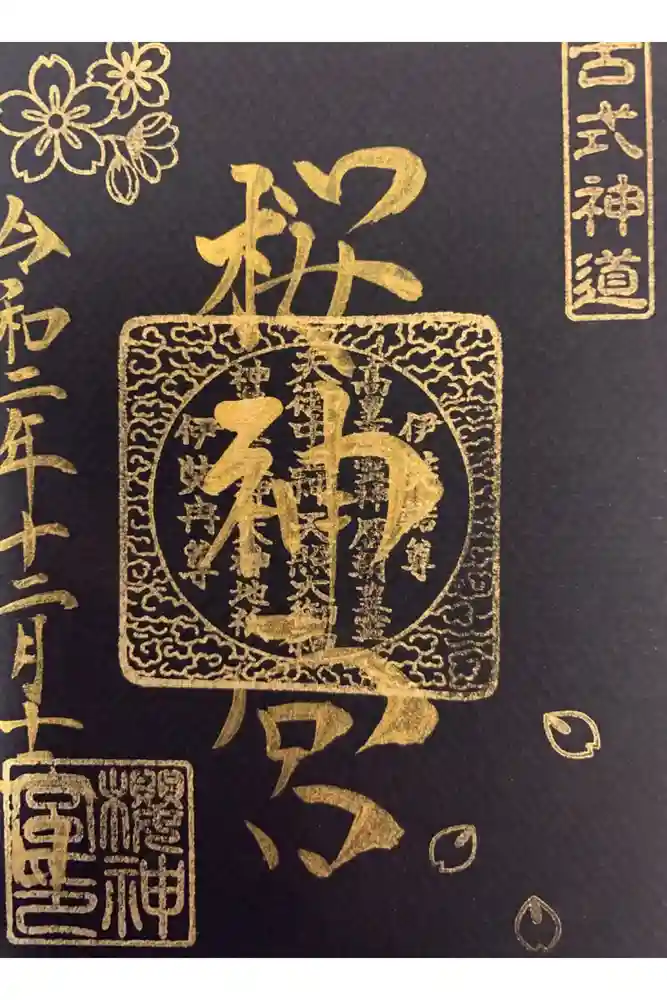 古式神道
桜神宮
伊弉諾尊
高皇産霊神歴朝皇霊
天御中主神天照大御神
神皇産霊神地祇
伊弉冉尊
令和二年十二月十
櫻神宮印